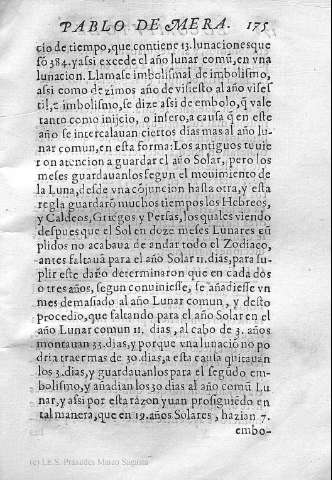 PABLO DE MERA. 175
cio de tiempo, que contiene 13. lunaciones que
só 384. y assi excede el año lunar comũ, en vna
lunacion. Llamase imbolismal de imbolismo,
assi como dezimos año de visiesto al año visef
til, e imbolismo, se dize assi de embolo, q̃ vale
tanto como inijcio, o insero, a causa q̃ en este
año se intercalauan ciertos dias mas al año lu
nar comun, en esta forma: Los antiguos tuuie
ron atencion a guardar el año Solar, pero los
meses guardauanlos segun el mouimiento de
la Luna, desde vna cõjuncion hasta otra, y esta
regla guardarõ muchos tiempos los Hebreos,
y Caldeos, Griegos y Persas, los quales viendo
despues que el Sol en doze meses Lunares cũ
plidos no acabaua de andar todo el Zodiaco,
antes faltauã para el año Solar 11. dias, para su-
plir este daño determinaron que en cada dos
o tres años, segun conuiniesse, se añadiesse vn
mes demasiado al año Lunar comun, y desto
procedio, que faltando para el año Solar en el
año Lunar comun 11. dias, al cabo de 3. años
montauan 33. dias, y porque vna lunació no po
dria traer mas de 30. dias, a esta causa quitauan
los 3. dias, y guardauanlos para el segũdo em-
bolismo, y añadian los 30 dias al año comũ Lu
nar, y assi por esta razon yuan prosiguiẽdo en
tal manera, que en 19. años Solares, hazian 7.
embo-
(c) I.E.S. Práxedes Mateo Sagasta